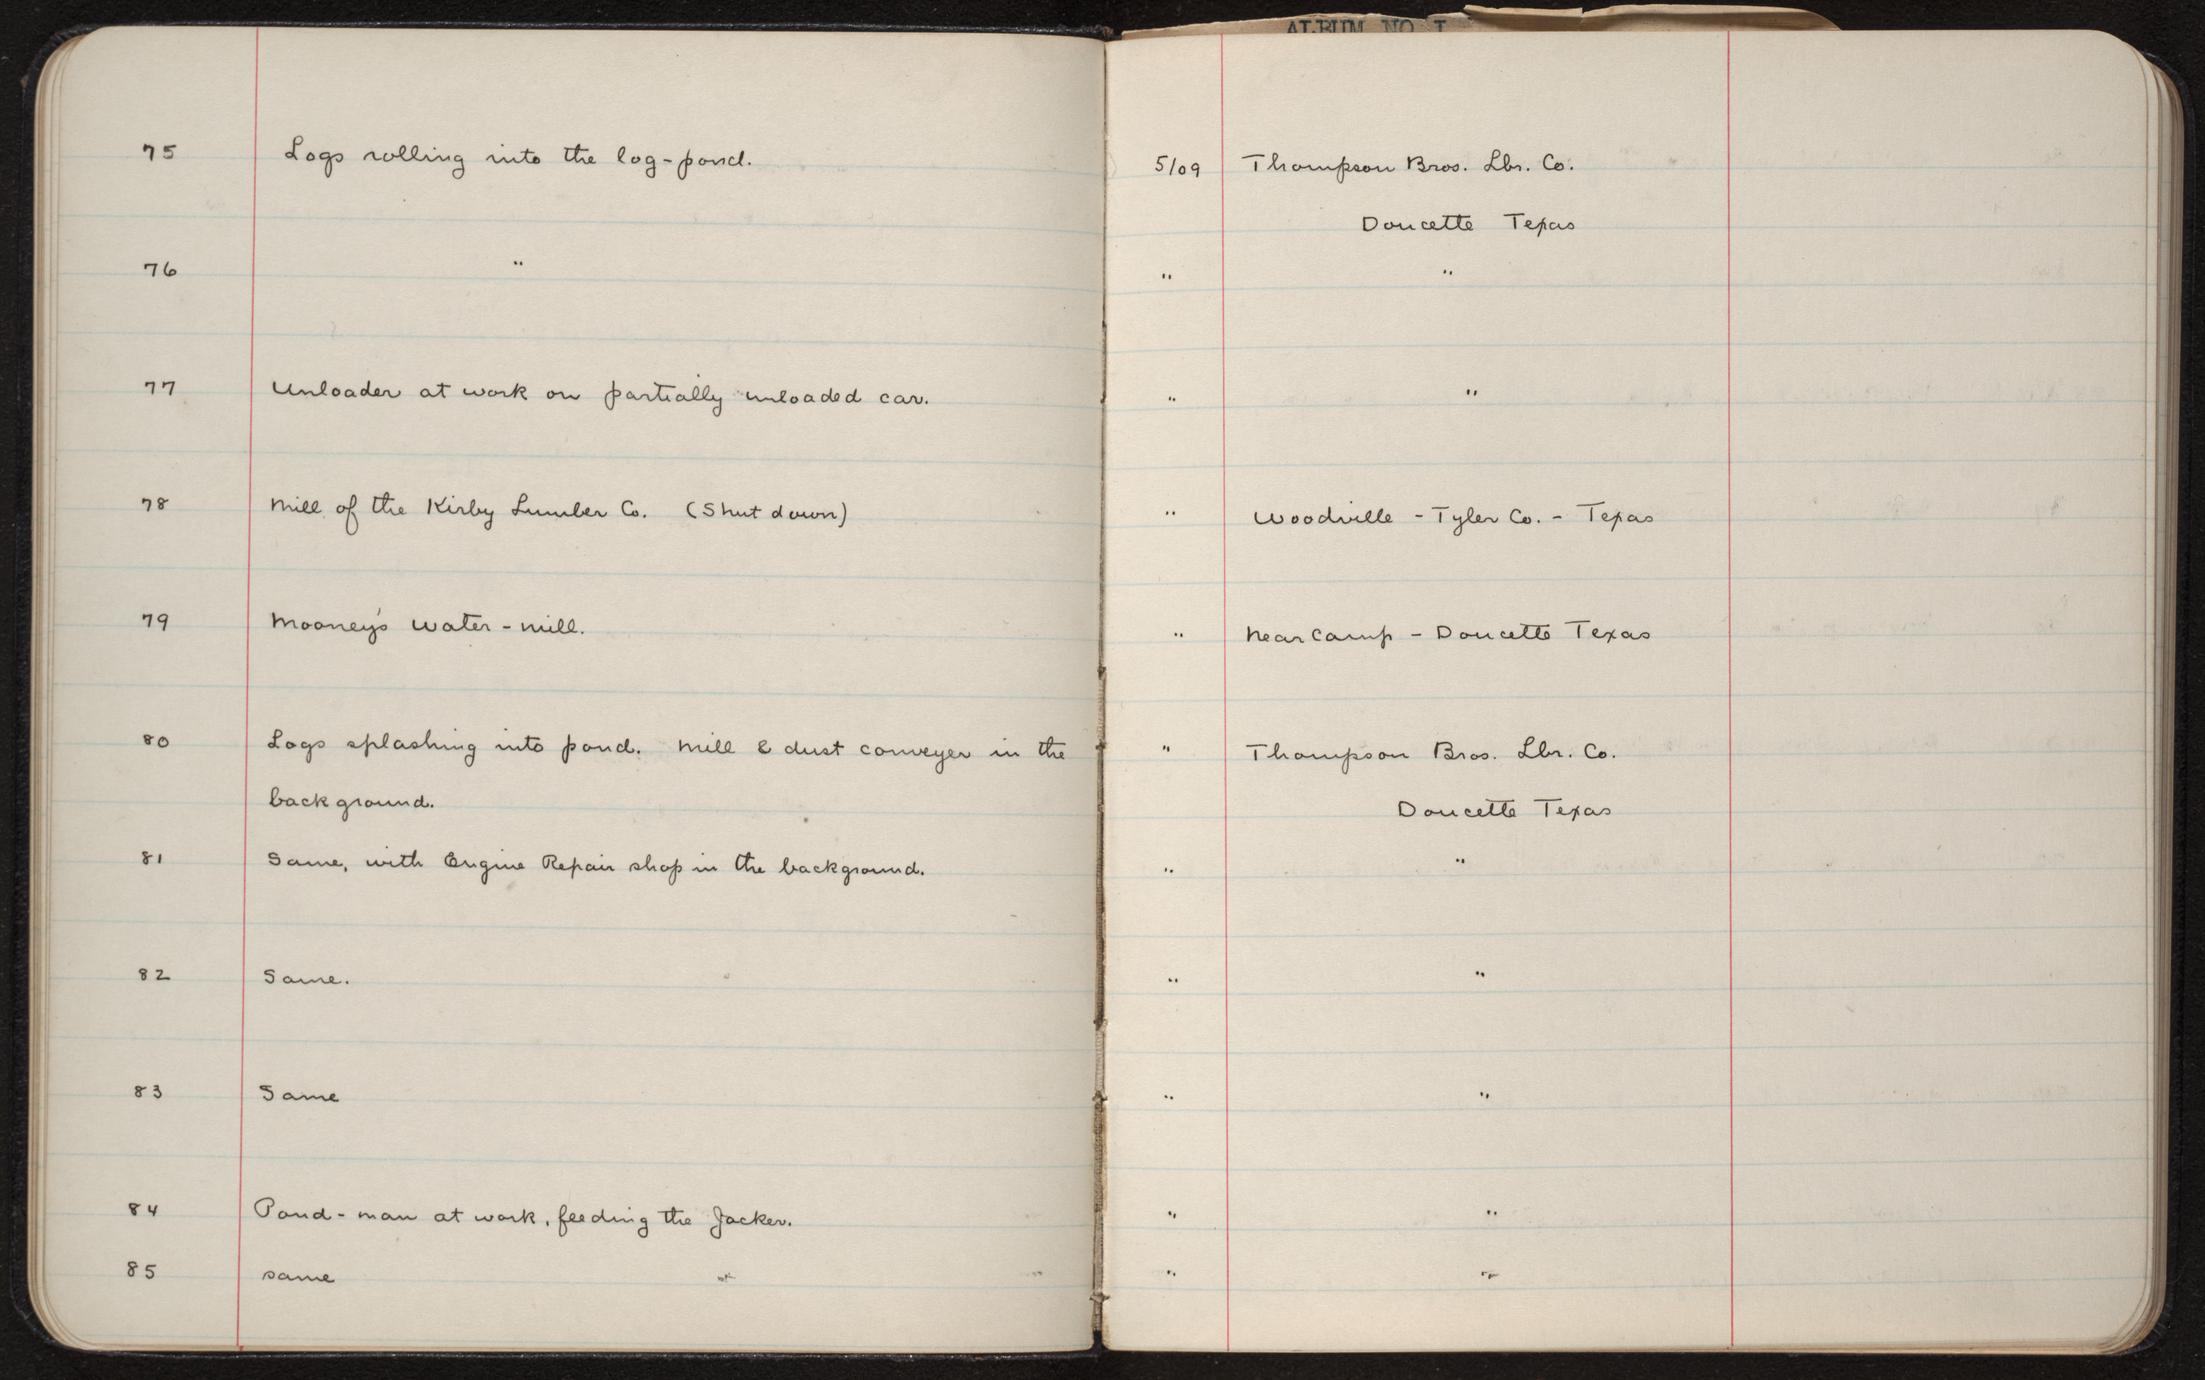 ALBUM NO I
75 Logs rolling into the log-pond. 5/09 Thompson Bros. Lbr. Co.
Doucette Texas
76 " " "
77 Unloader at work on partially unloaded car. " "
78 Mill of the Kirby Lumber Co. (Shut down) " Woodville - Tyler Co. - Texas
79 Mooney's water-mill. " Near Camp - Doucette Texas
80 Logs splashing into pond. Mill & dust conveyer in the " Thompson Bros. Lbr. Co.
background. Doucette Texas
81 Same, with Engine Repair shop in the background. " "
82 Same. " "
83 Same " "
84 Pond-man at work, feeding the Jacker. " "
85 same " " "